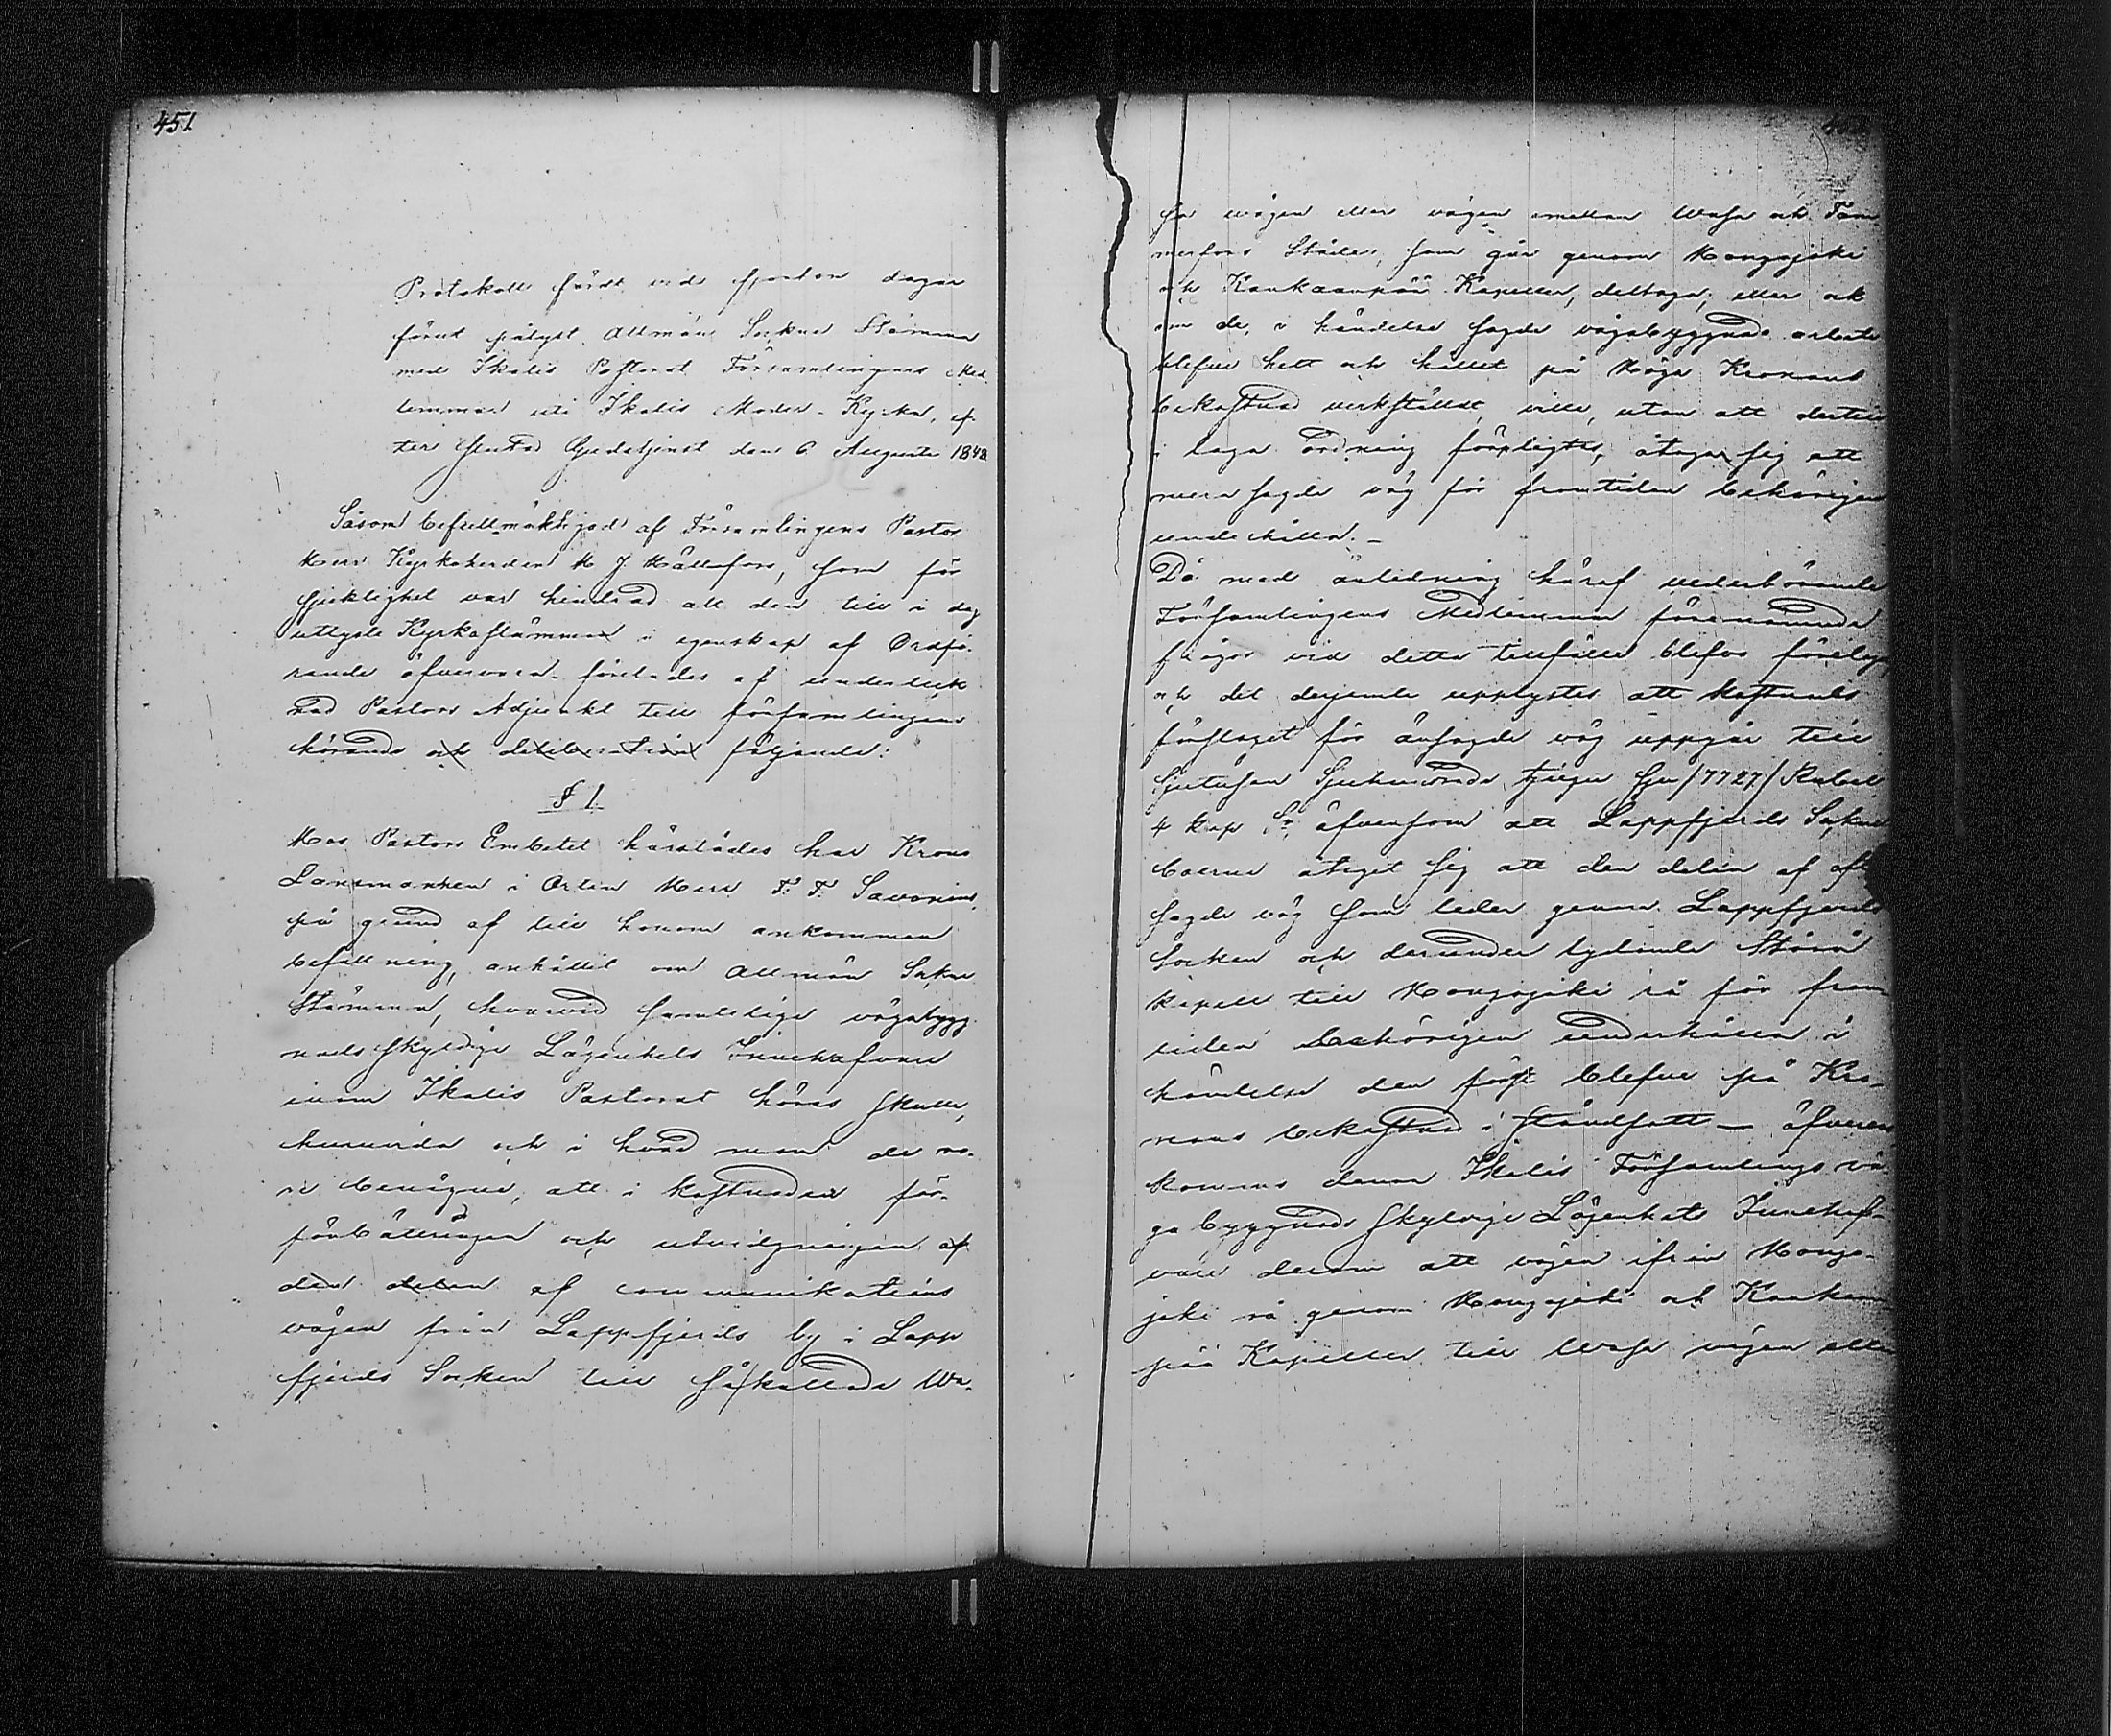 451
Protokoll fördt vid fjorton dagar
förut pålyst Allmän Sockne Stämma
med Ikalis Pastorat Församlingars Med
lemmar uti Ikalis Moder-Kyrka, ef
ter slutad Gudstjenst den 6 Augusti 1848
Såsom befullmäktigad af Församlingens Pastor
Herr Kyrkoherden M J Hällfors, som för
sjuklighet var hindrad att den till i dag
utlysta Kyrkostämman i egenskap af Ordfö-
rande öfvervara föreslades af underteck
nad Pastors Adjunkt till församlingens
hörande och deliberation följande:
§ 1
Hos Pastors Embetet härstädes har Krono
Länsmannen i Orten Herr F. F. Savonius,
på grund af till honom ankommen
befallning, anhållit om Allmän Sockne
Stämma, hvarvid samtelige vägabygg
nads skyldige Lägenhets Innehafvare
inom Ikalis Pastorat höras skulle,
huruvida och i hvad mon de vo-
re benägne, att i kostnaden för
förbättringen och utvidgningen af
den delen af communikations
vägen från Lappfjerds by i Lapp
fjerds Socken till så kallade Wa-
sa vägen eller vägen emellan Wasa och Tam
merfors Städer, som går genom Hongojoki
och Kankaanpää Kapeller, deltaga; eller ock
om de, i händelse sagde vägabyggnads arbete
blefve helt och hållet på Höga Kronans
bekostnad verkställdt, ville, utan att dertill
i laga ordning förpligtas, åtaga sig att
mera sagde väg för framtiden behörigen
underhålla. –
Då med anledning häraf vederbörande
Församlingens Medlemmar förenämnde
frågor vid detta tillfälle blefvo förelagde,
och det derjemte upplystes att kostnads
förslaget för ansagde väg uppgår till
Sjutusen Sjuhundrade tjugu sju /7727/ Rubel
4 kop Sr, äfvensom att Lappfjerds Sockne
boerne åtagit sig att den delen af oft
sagde väg som leder genom Lappfjerds
Socken och derunder lydande Storå
kapell till Hongojoki rå för fram
tiden behörigen underhålla i
händelse den först blefve på Kro-
nans bekostnad i ståndsatt – öfverens
kommo denna Ikalis Församlings vä-
ga byggnads skyldige Lägenhets Innehaf-
vare derom att vägen ifrån Hongo-
joki rå genom Hongojoki och Kankaan
pää Kapeller till Wasa vägen eller